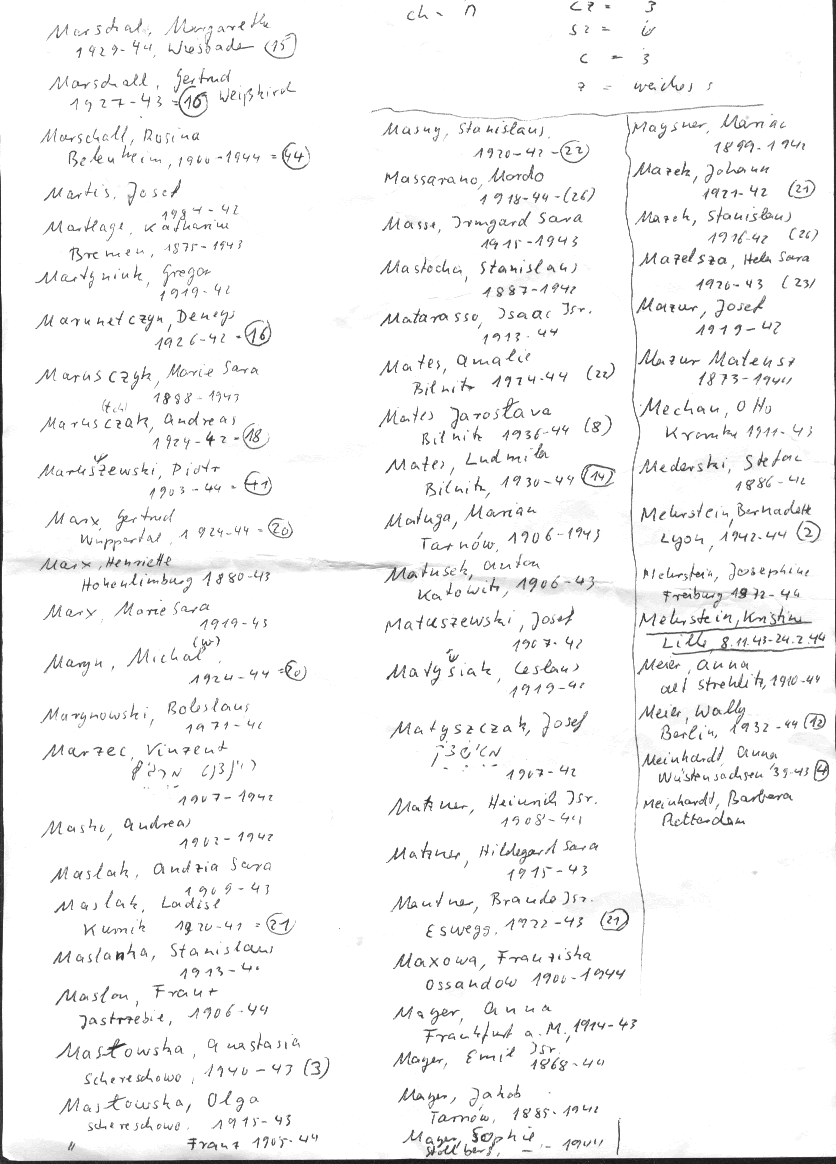 ch = n
cz = 3
sz = w
c = 3
z = weiches s
Marschal, Margarethe
1929-44, Wiesbaden (15)
Marschall, Gertrud
1927-43 = (16) Weißkirch
Marschall, Rosina
1900-1944 = (44)
Martis, Josef
-42
Martlage, Katharine
Bremen, 1875-1943
Martyniuk, Gregor
1919-42
Marunetczyn, Denegs
1926-42 = (16)
Marusczyk, Marie Sara
1888-1943
(tch)
Marusczak, Andreas
1924-42 = (18)
Maruszewski, Piotr
1903-44 = (41)
Marx, Gertrud
Wuppertal, 1924-44 = (20)
Marx, Henriette
Hohenlimburg 1880-43
Marx, Marie Sara
1919-43
(w)
Maryn, Michal
1924-44 = (20)
Marynowski, Boleslaus
Marzec, Vinzent
1907-1942
Masho, Andreas
1902-1942
Maslak, Andzia Sara
1909-43
Maslak, Ladisl
Kurnik 1920-41 = (21)
Maslanka, Stanislaus
Maslon, Franz
Jastrzebie, 1906-44
Mastowska, Anastasia
Schereschowo, 1940-43 (3)
Mastowska, Olga
Schereschowo. 1915-43
" Franz 1905-44
Masny, Stanislaus
1920-42 = (22)
Massarano, Mordo
1918-44 = (26)
Masse, Irmgard Sara
1915-1943
Mastocha, Stanislaus
1887-1942
Matarasso, Isaac Isr.
1913-44
Mates, Amalie
Bilnitz 1924-44 (22)
Mates Jarostava
Bilnitz 1936-44 (8)
Mates, Ludmila
Bilnitz, 1930-44 (14)
Matuga, Marian
Tarnów, 1906-1943
Matusek, Anton
Katowitz, 1906-43
Matuszewski, Josef
1907-42
Matyšiak, Ceslaus
Matyszczak, Josef
1907-42
Matzner, Heinrich Isr.
1908-44
Matzner, Hildegard Sara
1915-43
Mautner, Brando Isr.
Eswegg, 1922-43 (21)
Maxowa, Franziska
Ossandow 1900-1944
Mayer, Anna
Frankfurt a.M., 1914-43
Mayer, Emil Isr.
1868-44
Mayer, Jakob
Tarnów, 1885-1942
Mayer, Sophie
Stollberg, - 1944
Maysner, Marian
1899-1942
Mazek, Johann
1921-42 (21)
Mazek, Stanislaus
1916-42 (26)
Mazelsza, Hela Sara
1920-43 (23)
Mazur, Josef
1919-42
Mazur Mateusz
1873-1944
Mechau, Otto
1911-43
Mederski, Stefan
1886-42
Mehrstein, Bernadette
Lyon, 1942-44 (2)
Mehrstein, Josephine
Freiburg 1872-44
Mehrstein, Kristine
Lille, 8.11.43-24.2.44
Meier, Anna
alt Strehlitz, 1910-44
Meier, Wally
Berlin, 1932-44 (12)
Meinhardt, Anna
Wüstensachsen '39-43 (4)
Meinhardt, Barbara
Rotterdam